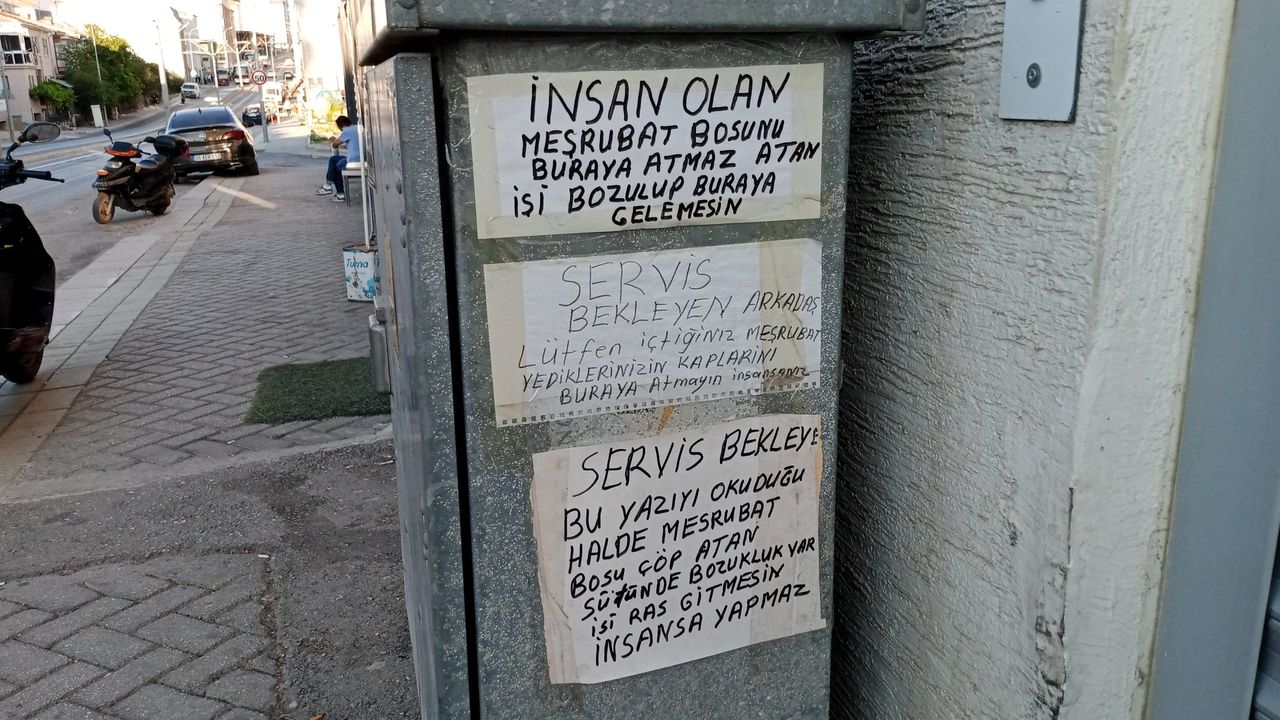 İNSAN OLAN
MEŞRUBAT BOSUNU
BURAYA ATMAZ ATAN
İŞİ BOZULUP BURAYA
GELEMESİN
SERVİS
BEKLEYEN ARKADAŞ
LÜTFEN içTİĞİNİZ MEŞRUBAT
YEDİKLERİNİZİN KAPLARINI
BURAYA AtMAYIN insansanız
SERVİS BEKLEYE
BU YAZIYI OKUDUĞU
HALDE MESRUBAT
BOSU ÇÖP ATAN
SÜTÜNDE BOZUKLUK VAR
İŞİ RAS GİTMESİN
İNSANSA YAPMAZ
50
Turna